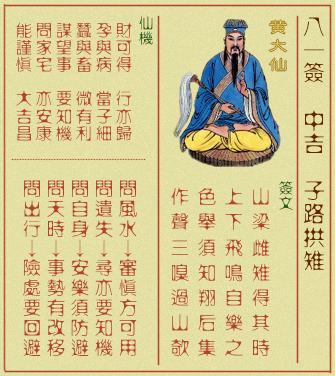 八一簽 中吉 子路拱雉
黄大仙
簽文
山梁雌雉得其時
上下飛鳴自樂之
色舉須知翔后集
作聲三嗅過山欹
仙機
財可得 行亦歸
孕與病 當子細
蠶與畜 微有利
謀望事 要知機
問家宅 亦安康
能謹慎 大吉昌
問風水↓審慎方可用
問遺失↓尋亦要知機
問自身↓安樂須防避
問天時↓事勢有改移
問出行↓險處要回避